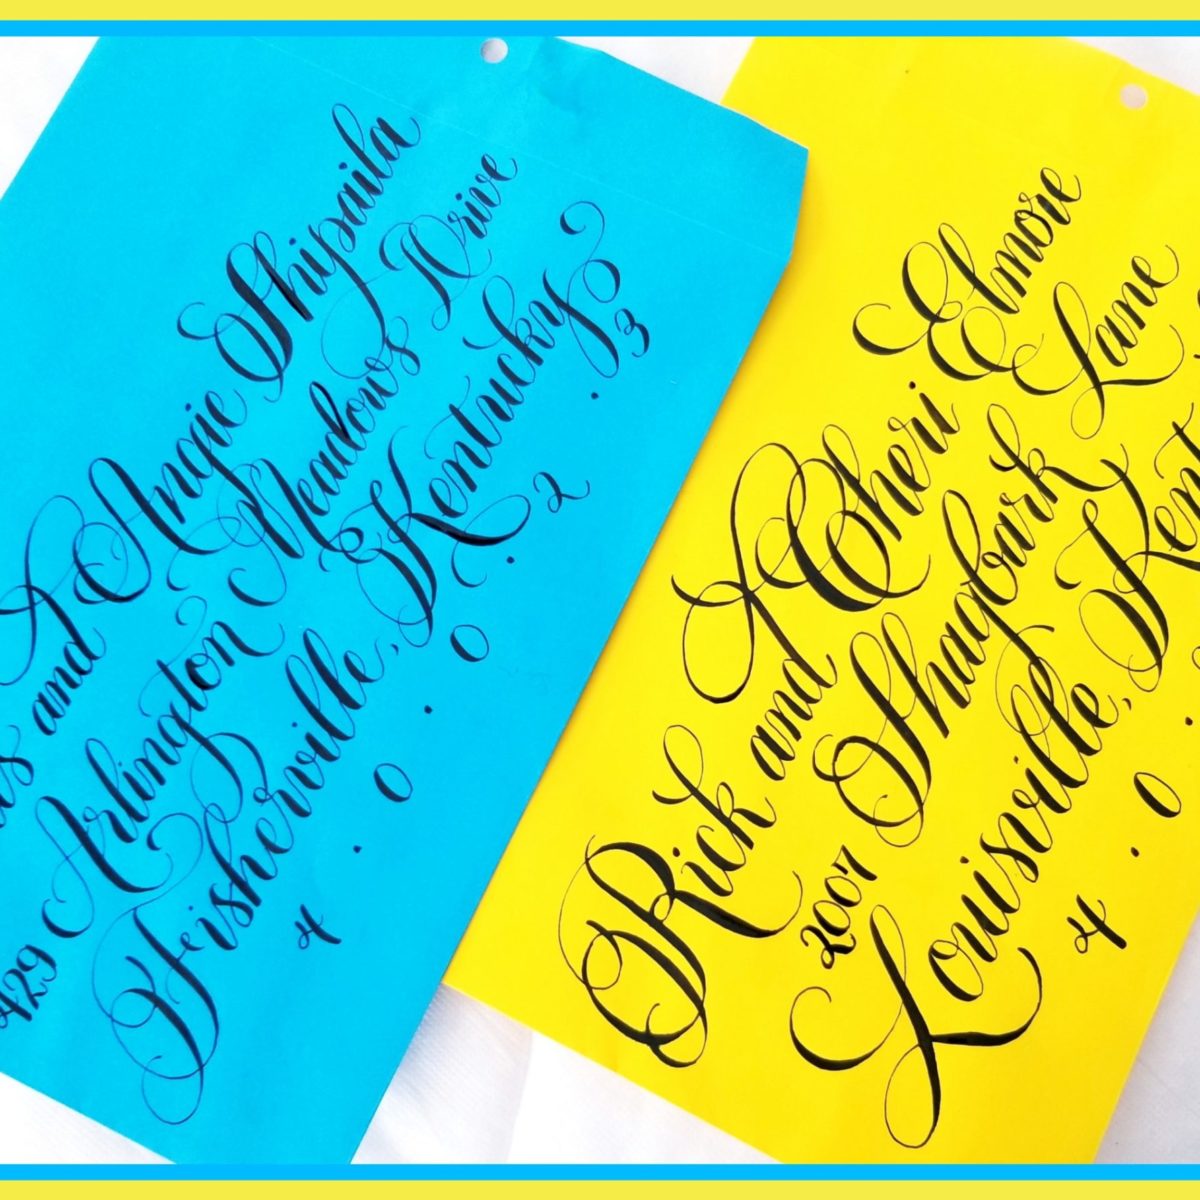 and Angie Shipaila
429 Arlington Meadows Drive
Fisherville, Kentucky
4 . 0 . 0 . 2 . 3
Rick and Cheri Elmore
2007 Shagbark Lane
Louisville, Kent
4 . 0 .